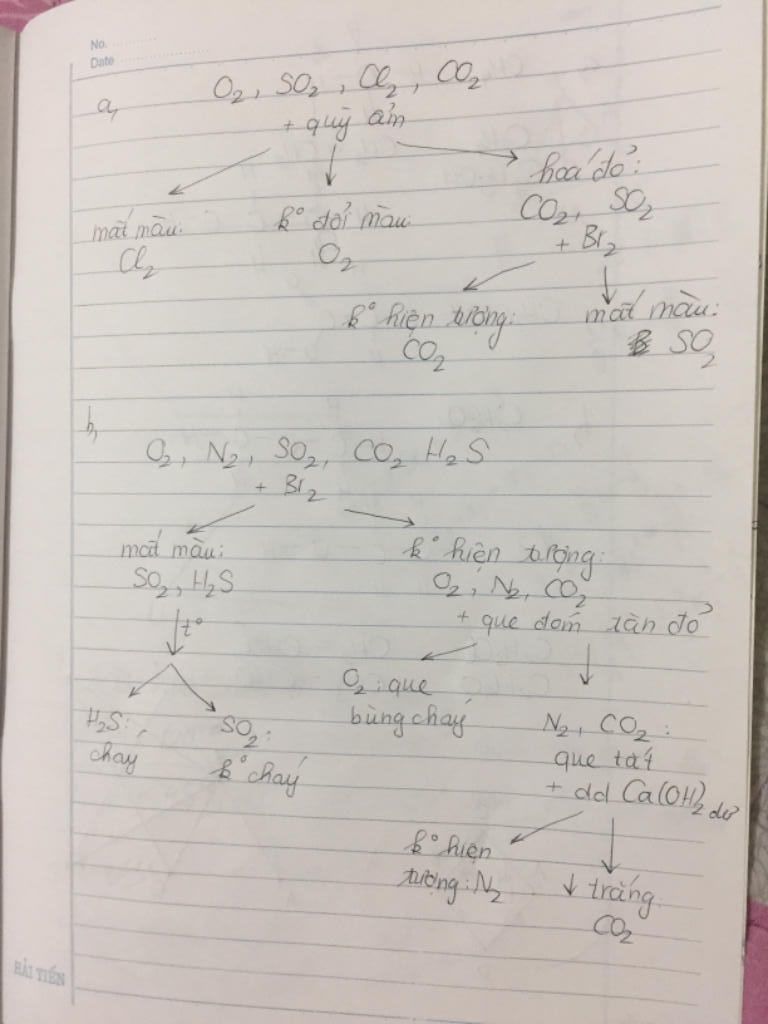 No. ............
Date ........................
a, O₂, SO₂, Cl₂, CO₂
+ quỳ ẩm
mất màu:
Cl₂
k° đổi màu:
O₂
hoá đỏ:
CO₂, SO₂
+ Br₂
k° hiện tượng:
CO₂
mất màu:
SO₂
b,
O₂, N₂, SO₂, CO₂ H₂S
+ Br₂
mất màu:
SO₂, H₂S
t°
H₂S:
cháy
SO₂:
k° cháy
k° hiện tượng:
O₂, N₂, CO₂
+ que đóm tàn đỏ
O₂: que
bùng cháy
N₂, CO₂:
que tắt
+ dd Ca(OH)₂ dư
k° hiện
tượng: N₂
↓ trắng:
CO₂
HẢI TIẾN